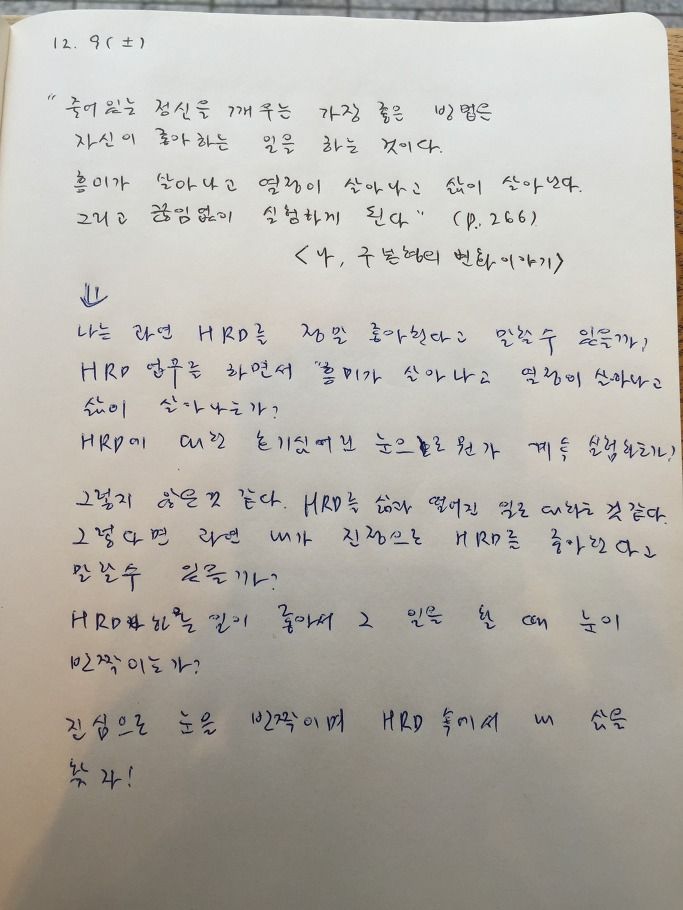 12. 9(土)
"죽어있는 정신을 깨우는 가장 좋은 방법은
자신이 좋아하는 일을 하는 것이다.
흥미가 살아나고 열정이 살아나고 삶이 살아난다.
그리고 끊임없이 실험하게 된다" (p. 266)
<나, 구본형의 변화이야기>
나는 과연 HRD를 정말 좋아한다고 말할 수 있을까?
HRD 업무를 하면서 "흥미가 살아나고 열정이 살아나고
삶이 살아나는가?
HRD에 대한 호기심어린 눈으로 뭔가 계속 실험하는가?
그렇지 않은것 같다. HRD를 삶과 떨어진 일로 대하는 것 같다.
그렇다면 과연 내가 진정으로 HRD를 좋아한다고
말할수 있을까?
HRD라는 일이 좋아서 그 일을 할 때 눈이
반짝이는가?
진심으로 눈을 반짝이며 HRD 속에서 내 삶을
찾자!